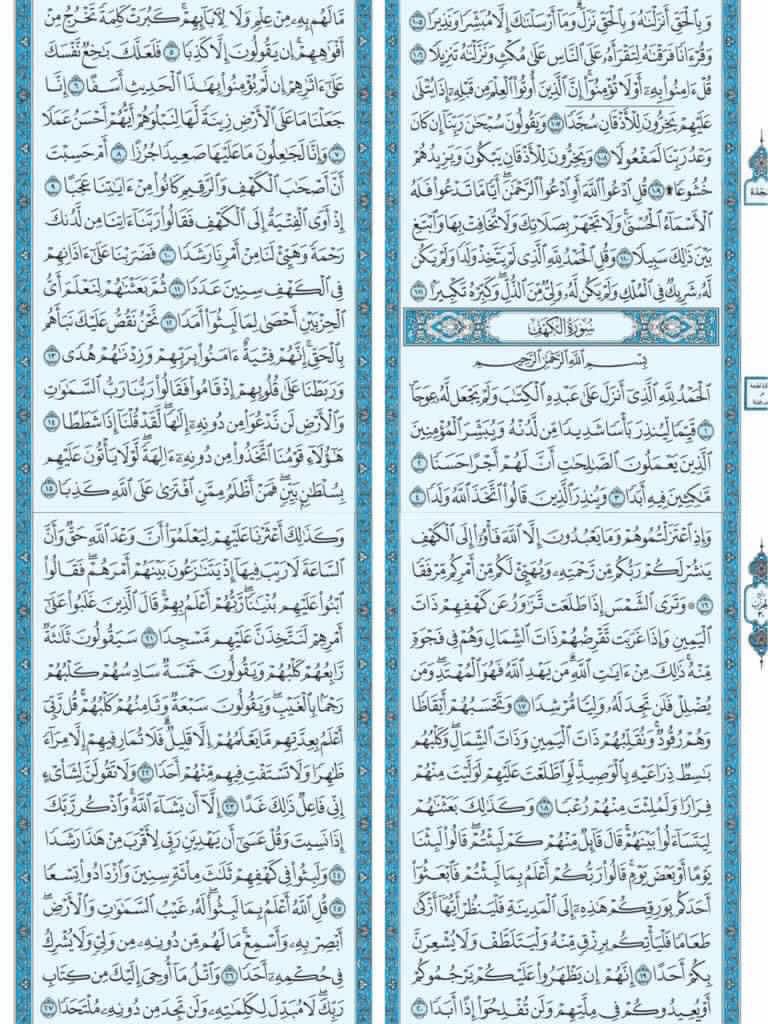 وَبِٱلْحَقِّ أَنزَلْنَٰهُ وَبِٱلْحَقِّ نَزَلَ ۗ وَمَآ أَرْسَلْنَٰكَ إِلَّا مُبَشِّرًا وَنَذِيرًا ١٠٥
وَقُرْءَانًا فَرَقْنَٰهُ لِتَقْرَأَهُۥ عَلَى ٱلنَّاسِ عَلَىٰ مُكْثٍ وَنَزَّلْنَٰهُ تَنزِيلًا ١٠٦
قُلْ ءَامِنُوا۟ بِهِۦٓ أَوْ لَا تُؤْمِنُوٓا۟ ۚ إِنَّ ٱلَّذِينَ أُوتُوا۟ ٱلْعِلْمَ مِن قَبْلِهِۦٓ إِذَا يُتْلَىٰ
عَلَيْهِمْ يَخِرُّونَ لِلْأَذْقَانِ سُجَّدًا ١٠٧ وَيَقُولُونَ سُبْحَٰنَ رَبِّنَآ إِن كَانَ
وَعْدُ رَبِّنَا لَمَفْعُولًا ١٠٨ وَيَخِرُّونَ لِلْأَذْقَانِ يَبْكُونَ وَيَزِيدُهُمْ
خُشُوعًا ۩ ١٠٩ قُلِ ٱدْعُوا۟ ٱللَّهَ أَوِ ٱدْعُوا۟ ٱلرَّحْمَٰنَ ۖ أَيًّا مَّا تَدْعُوا۟ فَلَهُ
ٱلْأَسْمَآءُ ٱلْحُسْنَىٰ ۚ وَلَا تَجْهَرْ بِصَلَاتِكَ وَلَا تُخَافِتْ بِهَا وَٱبْتَغِ
بَيْنَ ذَٰلِكَ سَبِيلًا ١١٠ وَقُلِ ٱلْحَمْدُ لِلَّهِ ٱلَّذِى لَمْ يَتَّخِذْ وَلَدًا وَلَمْ يَكُن
لَّهُۥ شَرِيكٌ فِى ٱلْمُلْكِ وَلَمْ يَكُن لَّهُۥ وَلِىٌّ مِّنَ ٱلذُّلِّ ۖ وَكَبِّرْهُ تَكْبِيرًۢا ١١١
سُورَةُ الكَهْفِ
بِسْمِ ٱللَّهِ ٱلرَّحْمَٰنِ ٱلرَّحِيمِ
ٱلْحَمْدُ لِلَّهِ ٱلَّذِىٓ أَنزَلَ عَلَىٰ عَبْدِهِ ٱلْكِتَٰبَ وَلَمْ يَجْعَل لَّهُۥ عِوَجَا
١ قَيِّمًا لِّيُنذِرَ بَأْسًا شَدِيدًا مِّن لَّدُنْهُ وَيُبَشِّرَ ٱلْمُؤْمِنِينَ
ٱلَّذِينَ يَعْمَلُونَ ٱلصَّٰلِحَٰتِ أَنَّ لَهُمْ أَجْرًا حَسَنًا ٢
مَّٰكِثِينَ فِيهِ أَبَدًا ٣ وَيُنذِرَ ٱلَّذِينَ قَالُوا۟ ٱتَّخَذَ ٱللَّهُ وَلَدًا ٤
مَّا لَهُم بِهِۦ مِنْ عِلْمٍ وَلَا لِـَٔابَآئِهِمْ ۚ كَبُرَتْ كَلِمَةً تَخْرُجُ مِنْ
أَفْوَٰهِهِمْ ۚ إِن يَقُولُونَ إِلَّا كَذِبًا ٥ فَلَعَلَّكَ بَٰخِعٌ نَّفْسَكَ
عَلَىٰٓ ءَاثَٰرِهِمْ إِن لَّمْ يُؤْمِنُوا۟ بِهَٰذَا ٱلْحَدِيثِ أَسَفًا ٦ إِنَّا
جَعَلْنَا مَا عَلَى ٱلْأَرْضِ زِينَةً لَّهَا لِنَبْلُوَهُمْ أَيُّهُمْ أَحْسَنُ عَمَلًا
٧ وَإِنَّا لَجَٰعِلُونَ مَا عَلَيْهَا صَعِيدًا جُرُزًا ٨ أَمْ حَسِبْتَ
أَنَّ أَصْحَٰبَ ٱلْكَهْفِ وَٱلرَّقِيمِ كَانُوا۟ مِنْ ءَايَٰتِنَا عَجَبًا ٩
إِذْ أَوَى ٱلْفِتْيَةُ إِلَى ٱلْكَهْفِ فَقَالُوا۟ رَبَّنَآ ءَاتِنَا مِن لَّدُنكَ
رَحْمَةً وَهَيِّئْ لَنَا مِنْ أَمْرِنَا رَشَدًا ١٠ فَضَرَبْنَا عَلَىٰٓ ءَاذَانِهِمْ
فِى ٱلْكَهْفِ سِنِينَ عَدَدًا ١١ ثُمَّ بَعَثْنَٰهُمْ لِنَعْلَمَ أَىُّ
ٱلْحِزْبَيْنِ أَحْصَىٰ لِمَا لَبِثُوٓا۟ أَمَدًا ١٢ نَّحْنُ نَقُصُّ عَلَيْكَ نَبَأَهُم
بِٱلْحَقِّ ۚ إِنَّهُمْ فِتْيَةٌ ءَامَنُوا۟ بِرَبِّهِمْ وَزِدْنَٰهُمْ هُدًى ١٣
وَرَبَطْنَا عَلَىٰ قُلُوبِهِمْ إِذْ قَامُوا۟ فَقَالُوا۟ رَبُّنَا رَبُّ ٱلسَّمَٰوَٰتِ
وَٱلْأَرْضِ لَن نَّدْعُوَا۟ مِن دُونِهِۦٓ إِلَٰهًا ۖ لَّقَدْ قُلْنَآ إِذًا شَطَطًا ١٤
هَٰٓؤُلَآءِ قَوْمُنَا ٱتَّخَذُوا۟ مِن دُونِهِۦٓ ءَالِهَةً ۖ لَّوْلَا يَأْتُونَ عَلَيْهِم
بِسُلْطَٰنٍۭ بَيِّنٍ ۖ فَمَنْ أَظْلَمُ مِمَّنِ ٱفْتَرَىٰ عَلَى ٱللَّهِ كَذِبًا ١٥
وَإِذِ ٱعْتَزَلْتُمُوهُمْ وَمَا يَعْبُدُونَ إِلَّا ٱللَّهَ فَأْوُۥٓا۟ إِلَى ٱلْكَهْفِ
يَنشُرْ لَكُمْ رَبُّكُم مِّن رَّحْمَتِهِۦ وَيُهَيِّئْ لَكُم مِّنْ أَمْرِكُم مِّرْفَقًا
١٦ ۞ وَتَرَى ٱلشَّمْسَ إِذَا طَلَعَت تَّزَٰوَرُ عَن كَهْفِهِمْ ذَاتَ
ٱلْيَمِينِ وَإِذَا غَرَبَت تَّقْرِضُهُمْ ذَاتَ ٱلشِّمَالِ وَهُمْ فِى فَجْوَةٍ
مِّنْهُ ۚ ذَٰلِكَ مِنْ ءَايَٰتِ ٱللَّهِ ۗ مَن يَهْدِ ٱللَّهُ فَهُوَ ٱلْمُهْتَدِ ۖ وَمَن
يُضْلِلْ فَلَن تَجِدَ لَهُۥ وَلِيًّا مُّرْشِدًا ١٧ وَتَحْسَبُهُمْ أَيْقَاظًا
وَهُمْ رُقُودٌ ۚ وَنُقَلِّبُهُمْ ذَاتَ ٱلْيَمِينِ وَذَاتَ ٱلشِّمَالِ ۖ وَكَلْبُهُم
بَٰسِطٌ ذِرَاعَيْهِ بِٱلْوَصِيدِ ۚ لَوِ ٱطَّلَعْتَ عَلَيْهِمْ لَوَلَّيْتَ مِنْهُمْ
فِرَارًا وَلَمُلِئْتَ مِنْهُمْ رُعْبًا ١٨ وَكَذَٰلِكَ بَعَثْنَٰهُمْ
لِيَتَسَآءَلُوا۟ بَيْنَهُمْ ۚ قَالَ قَآئِلٌ مِّنْهُمْ كَمْ لَبِثْتُمْ ۖ قَالُوا۟ لَبِثْنَا
يَوْمًا أَوْ بَعْضَ يَوْمٍ ۚ قَالُوا۟ رَبُّكُمْ أَعْلَمُ بِمَا لَبِثْتُمْ فَٱبْعَثُوٓا۟
أَحَدَكُم بِوَرِقِكُمْ هَٰذِهِۦٓ إِلَى ٱلْمَدِينَةِ فَلْيَنظُرْ أَيُّهَآ أَزْكَىٰ
طَعَامًا فَلْيَأْتِكُم بِرِزْقٍ مِّنْهُ وَلْيَتَلَطَّفْ وَلَا يُشْعِرَنَّ
بِكُمْ أَحَدًا ١٩ إِنَّهُمْ إِن يَظْهَرُوا۟ عَلَيْكُمْ يَرْجُمُوكُمْ
أَوْ يُعِيدُوكُمْ فِى مِلَّتِهِمْ وَلَن تُفْلِحُوٓا۟ إِذًا أَبَدًا ٢٠
وَكَذَٰلِكَ أَعْثَرْنَا عَلَيْهِمْ لِيَعْلَمُوٓا۟ أَنَّ وَعْدَ ٱللَّهِ حَقٌّ وَأَنَّ
ٱلسَّاعَةَ لَا رَيْبَ فِيهَآ إِذْ يَتَنَٰزَعُونَ بَيْنَهُمْ أَمْرَهُمْ ۖ فَقَالُوا۟
ٱبْنُوا۟ عَلَيْهِم بُنْيَٰنًا ۖ رَّبُّهُمْ أَعْلَمُ بِهِمْ ۚ قَالَ ٱلَّذِينَ غَلَبُوا۟ عَلَىٰٓ
أَمْرِهِمْ لَنَتَّخِذَنَّ عَلَيْهِم مَّسْجِدًا ٢١ سَيَقُولُونَ ثَلَٰثَةٌ
رَّابِعُهُمْ كَلْبُهُمْ وَيَقُولُونَ خَمْسَةٌ سَادِسُهُمْ كَلْبُهُمْ
رَجْمًۢا بِٱلْغَيْبِ ۖ وَيَقُولُونَ سَبْعَةٌ وَثَامِنُهُمْ كَلْبُهُمْ ۚ قُل رَّبِّىٓ
أَعْلَمُ بِعِدَّتِهِم مَّا يَعْلَمُهُمْ إِلَّا قَلِيلٌ ۗ فَلَا تُمَارِ فِيهِمْ إِلَّا مِرَآءً
ظَٰهِرًا وَلَا تَسْتَفْتِ فِيهِم مِّنْهُمْ أَحَدًا ٢٢ وَلَا تَقُولَنَّ لِشَا۟ىْءٍ
إِنِّى فَاعِلٌ ذَٰلِكَ غَدًا ٢٣ إِلَّآ أَن يَشَآءَ ٱللَّهُ ۚ وَٱذْكُر رَّبَّكَ
إِذَا نَسِيتَ وَقُلْ عَسَىٰٓ أَن يَهْدِيَنِ رَبِّى لِأَقْرَبَ مِنْ هَٰذَا رَشَدًا
٢٤ وَلَبِثُوا۟ فِى كَهْفِهِمْ ثَلَٰثَ مِا۟ئَةٍ سِنِينَ وَٱزْدَادُوا۟ تِسْعًا
٢٥ قُلِ ٱللَّهُ أَعْلَمُ بِمَا لَبِثُوا۟ ۖ لَهُۥ غَيْبُ ٱلسَّمَٰوَٰتِ وَٱلْأَرْضِ ۖ
أَبْصِرْ بِهِۦ وَأَسْمِعْ ۚ مَا لَهُم مِّن دُونِهِۦ مِن وَلِىٍّ وَلَا يُشْرِكُ
فِى حُكْمِهِۦٓ أَحَدًا ٢٦ وَٱتْلُ مَآ أُوحِىَ إِلَيْكَ مِن كِتَابِ
رَبِّكَ ۖ لَا مُبَدِّلَ لِكَلِمَٰتِهِۦ وَلَن تَجِدَ مِن دُونِهِۦ مُلْتَحَدًا ٢٧